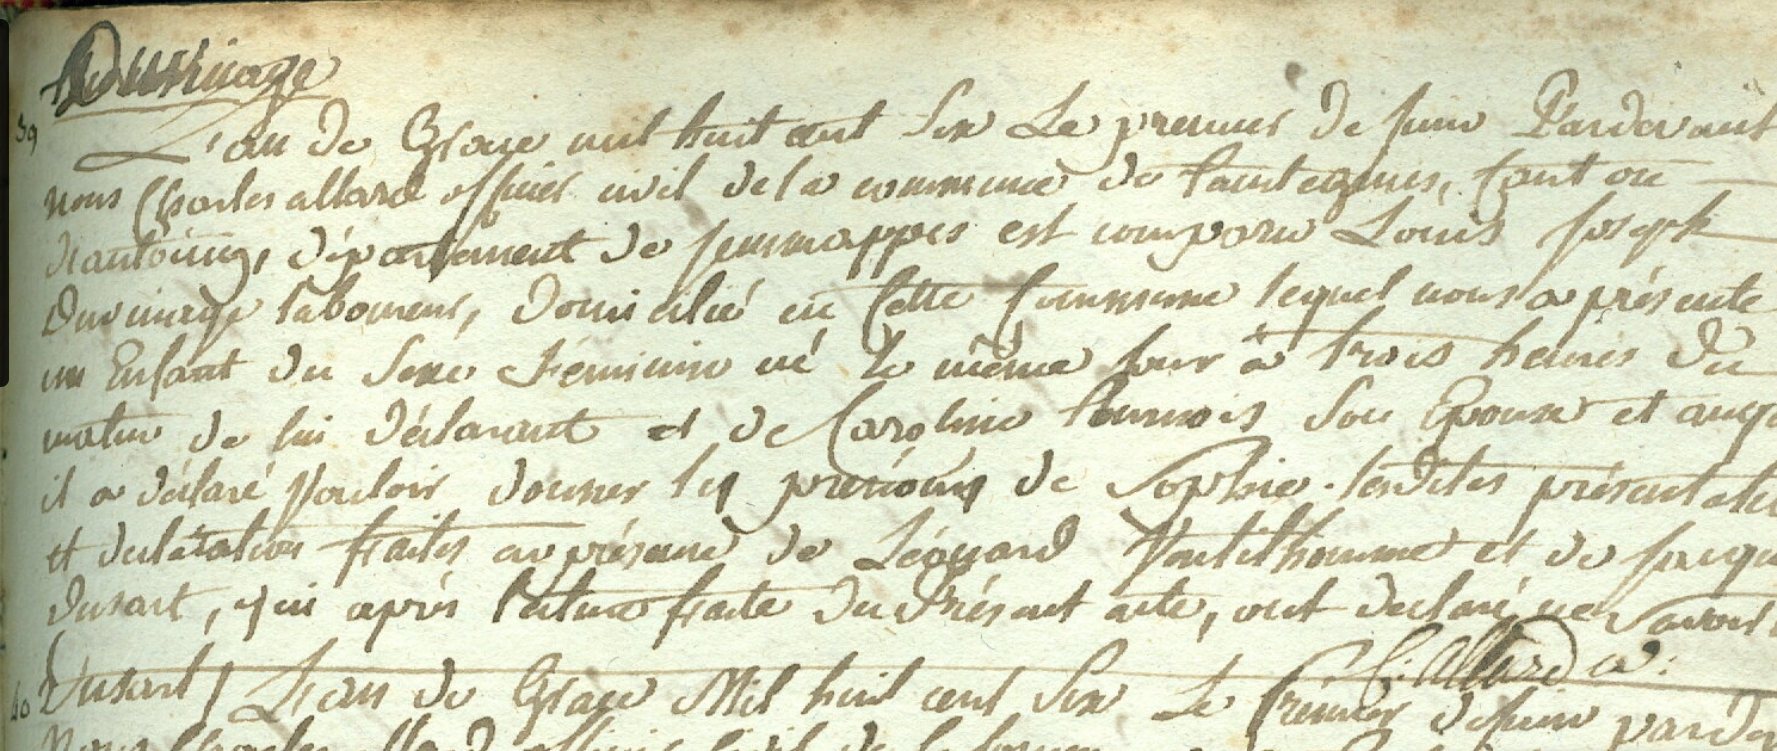 Duvinage
39
L'an de Grace mil huit cent Six Le premier de juin Pardevant
nous Charles allard officier civil de la commune de taintegnies, canton
d'antoing, département de jemmappes est comparu Louis joseph
Duvinage laboureur, domicilié en Cette Commune lequel nous a présenté
un Enfant du Sexe féminin né le même jour à trois heures du
matin de lui déclarant et de Caroline Son Epouse et auqu
il a déclaré Vouloir donner les prénoms de Sophie. lesdites présentatio
et declaration faites en présence de Léonard et de jacqu
dusart, qui après lecture faite du Présent acte, ont declaré ne Savoir
C: Allard
40 Dusart L'an de Grace Mil huit cent Six Le Premier de juin parde
Nous Charles allard officier civil de la